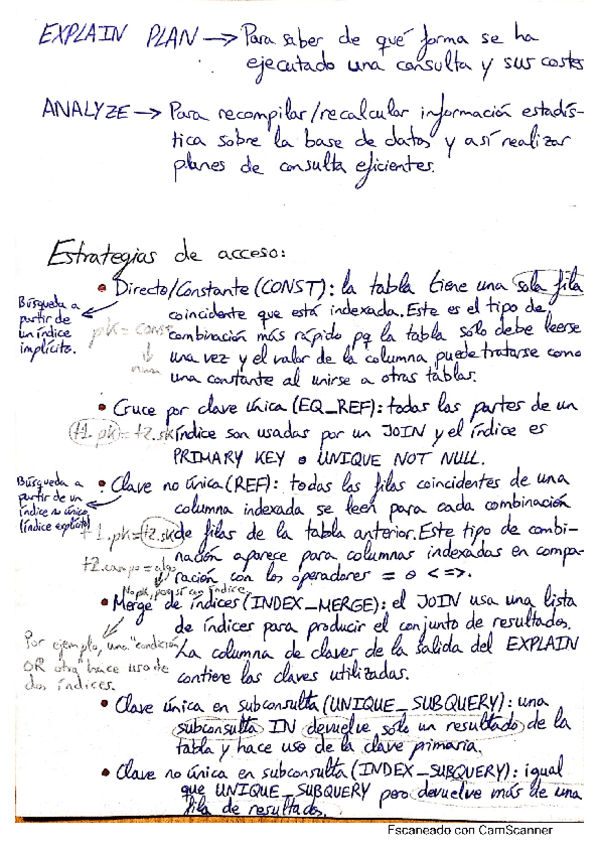 EXPLAIN PLAN → Para saber de qué forma se ha
ejecutado una consulta y sus costes
ANALYZE → Para recompilar/recalcular información estadís-
tica sobre la base de datos y así realizar
planes de consulta eficientes.
Estrategias de acceso:
• Directo/Constante (CONST): la tabla tiene una sola fila
coincidente que está indexada. Este es el tipo de
combinación más rápido pq la tabla solo debe leerse
una vez y el valor de la columna puede tratarse como
una constante al unirse a otras tablas.
Búsqueda a
partir de
un índice
implícito.
pk = const
• Cruce por clave única (EQ_REF): todas las partes de un
índice son usadas por un JOIN y el índice es
PRIMARY KEY o UNIQUE NOT NULL.
t1.pk = t2.sk
• Clave no única (REF): todas las filas coincidentes de una
columna indexada se leen para cada combinación
de filas de la tabla anterior. Este tipo de combi-
nación aparece para columnas indexadas en compa-
ración con los operadores = o <=>.
Búsqueda a
partir de un
índice no único
(índice explícito)
t1.pk = t2.sk
t2.campo = algo
No pk, pq sí con índice
• Merge de índices (INDEX_MERGE): el JOIN usa una lista
de índices para producir el conjunto de resultados.
La columna de claves de la salida del EXPLAIN
contiene las claves utilizadas.
Por ejemplo, una "condición
OR otra" hace uso de
dos índices.
• Clave única en subconsulta (UNIQUE_SUBQUERY): una
subconsulta IN devuelve sólo un resultado de la
tabla y hace uso de la clave primaria.
• Clave no única en subconsulta (INDEX_SUBQUERY): igual
que UNIQUE_SUBQUERY pero devuelve más de una
fila de resultados.
Escaneado con CamScanner